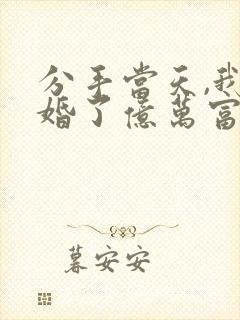 分手當天,我
婚了億萬富
暮安安